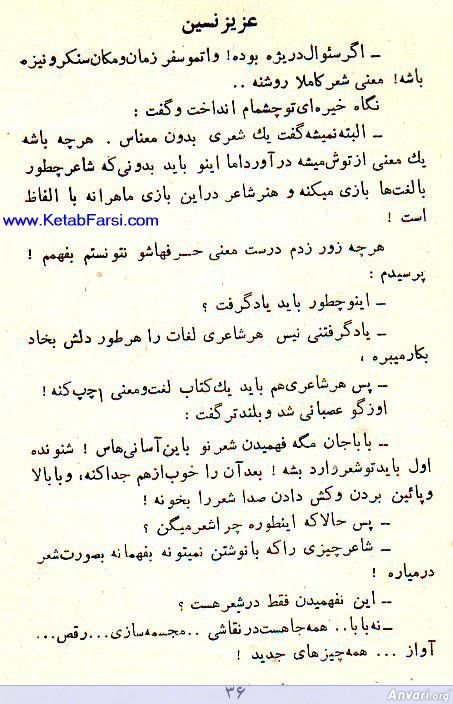 عزیز نسین
ـ اگر سئوال دریژه بوده! واتموسفر زمان و مکان سنکرونیزه
باشه! معنی شعر کاملا روشنه ..
نگاه خیره‌ای تو چشمام انداخت و گفت :
ـ البته نمیشه گفت یك شعری بدون معناس . هرچه باشه
یك معنی از توش میشه در آورد اما اینو باید بدونی که شاعر چطور
با لغت‌ها بازی میکنه و هنر شاعر در این بازی ماهرانه با الفاظ
است !
www.KetabFarsi.com
هرچه زور زدم درست معنی حـرفهاشو نتونستم بفهمم !
پرسیدم :
ـ اینو چطور باید یاد گرفت ؟
ـ یاد گرفتنی نیس هر شاعری لغات را هر طور دلش بخاد
بکار میبره ،
ـ پس هر شاعری هم باید یك کتاب لغت و معنی چپ کنه !
اوزگو عصبانی شد و بلندتر گفت :
ـ با با جان مگه فهمیدن شعر نو باین آسانی‌هاس ! شنونده
اول باید تو شعر وارد بشه ! بعد آن را خوب از هم جدا کنه، و با بالا
و پائین بردن و کش دادن صدا شعر را بخونه !
ـ پس حالا که اینطوره چرا شعر میگن ؟
ـ شاعر چیزی را که با نوشتن نمیتونه بفهمانه بصورت شعر
در میاره !
ـ این نفهمیدن فقط در شعر هست ؟
ـ نه بابا .. همه جا هست در نقاشی .. مجسمه سازی ... رقص ...
آواز ... همه چیزهای جدید !
۳۶
Anvari.org